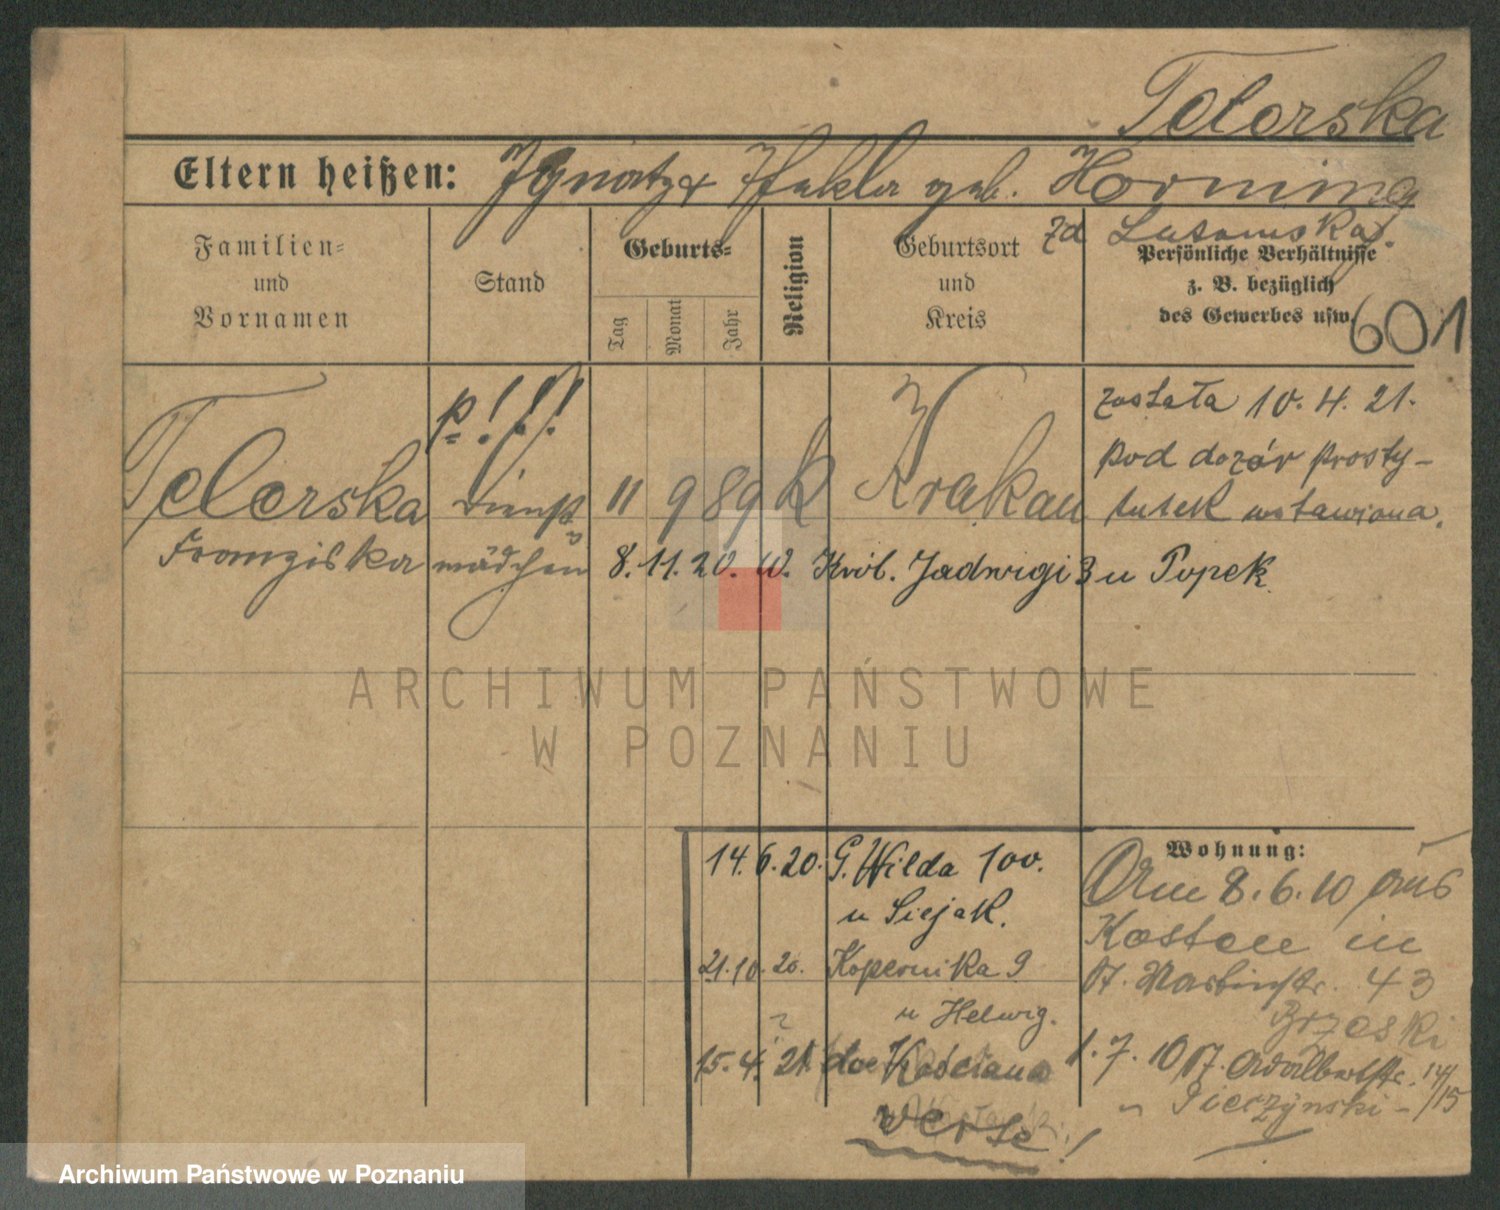 Telerska
Eltern heißen: Ignatz & Thekla geb. Horning
zd Lusowska
Familien- und Vornamen
Stand
Geburts-
Tag Monat Jahr
Religion
Geburtsort und Kreis
Persönliche Verhältnisse z. B. bezüglich des Gewerbes usw.
601
p!!!
została 10. 4. 21.
pod dozór prosty-
tutek wstawiona.
Telerska Dienst 11 9 89 k Krakau
Franziska mädchen 8. 11. 20. w. Król. Jadwigi 3 u Popek
ARCHIWUM PAŃSTWOWE
W POZNANIU
14. 6. 20. G. Wilda 100.
u Siejak.
21. 10. 20. Kopernika 9
u Helwig.
15. 4. 21 do Kościana
verte!
Wohnung:
Am 8. 6. 10 aus
Kosten in
St. Martinstr. 43
Brzeski
1. 7. 10 St. Adalbertstr. 14/15
Pierzynski
Archiwum Państwowe w Poznaniu